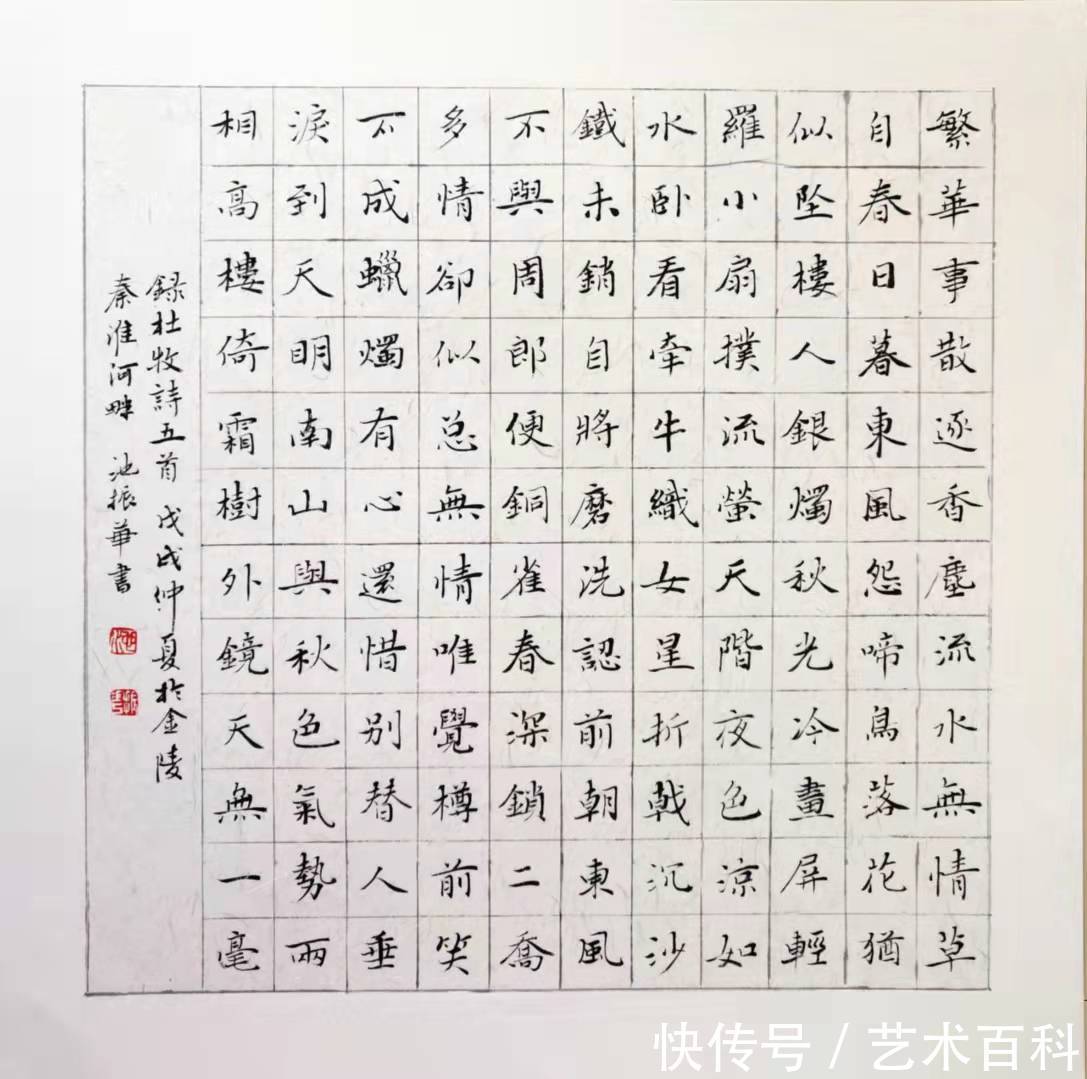 繁華事散逐香塵流水無情草
自春日暮東風怨啼鳥落花猶
似坠樓人銀燭秋光冷畫屏輕
羅小扇撲流螢天階夜色涼如
水卧看牽牛織女星折戟沉沙
鐵未銷自將磨洗認前朝東風
不與周郎便銅雀春深鎖二喬
多情卻似总無情唯覺樽前笑
不成蠟燭有心還惜别替人垂
淚到天明南山與秋色氣勢兩
相高樓倚霜樹外鏡天無一毫
録杜牧詩五首 戊戌仲夏於金陵
秦淮河畔 池振華書
快传号／艺术百科